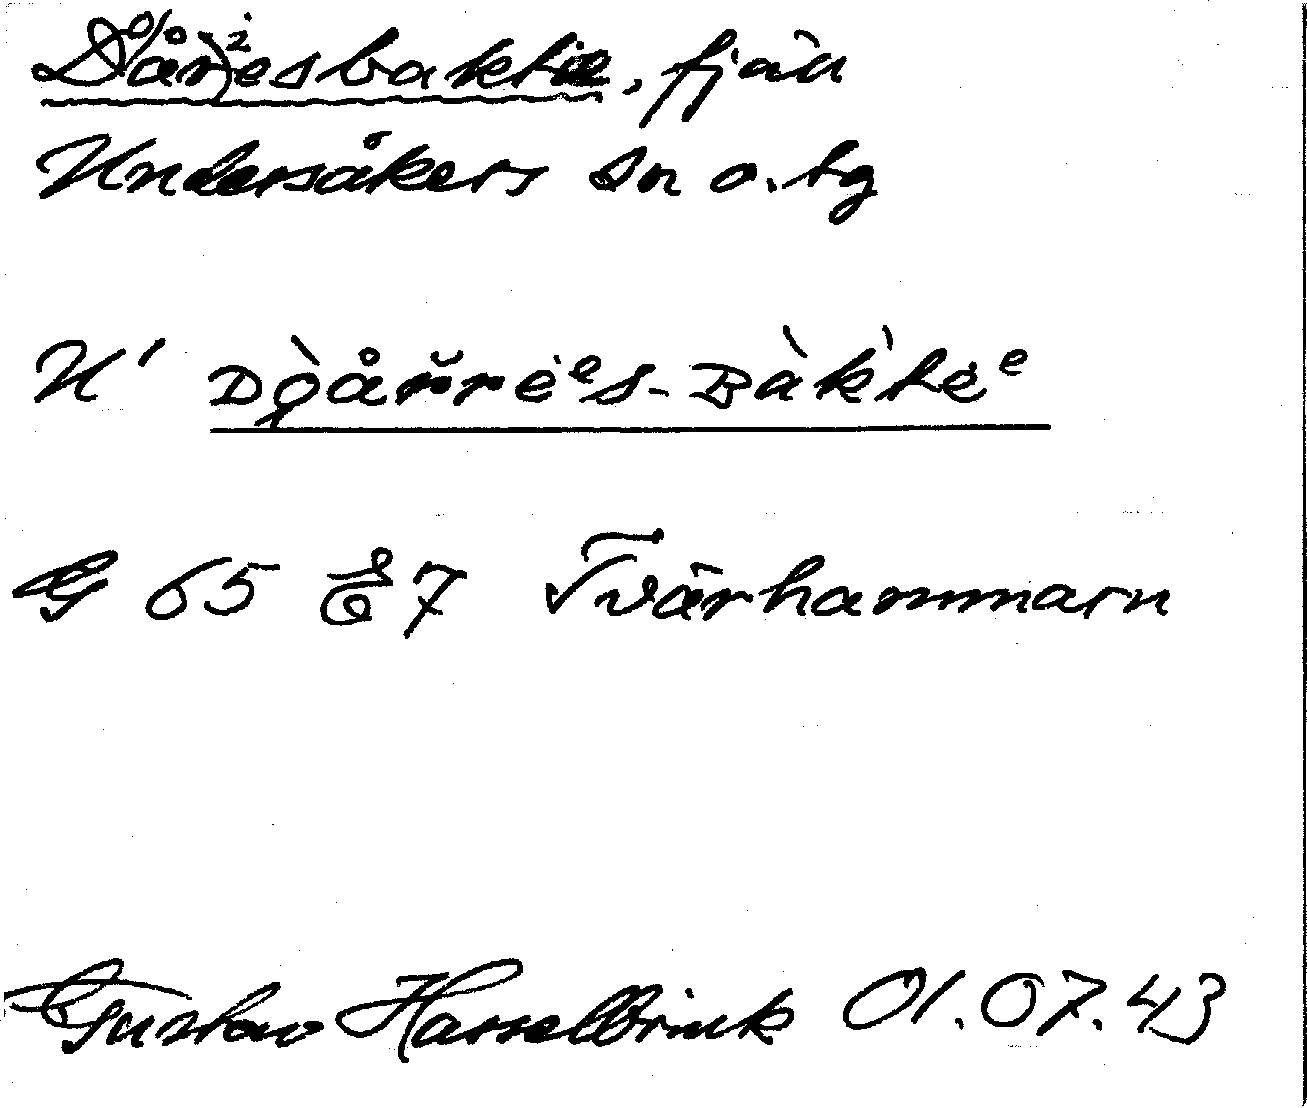 Dåresbaktie, fjäll
Undersåkers sn o. tg
U' Dɒån̆rèᵉs-Bàk̀tèᵉ
G 65 Tvärhammarn
Gustav Hasselbrink 01.07.43